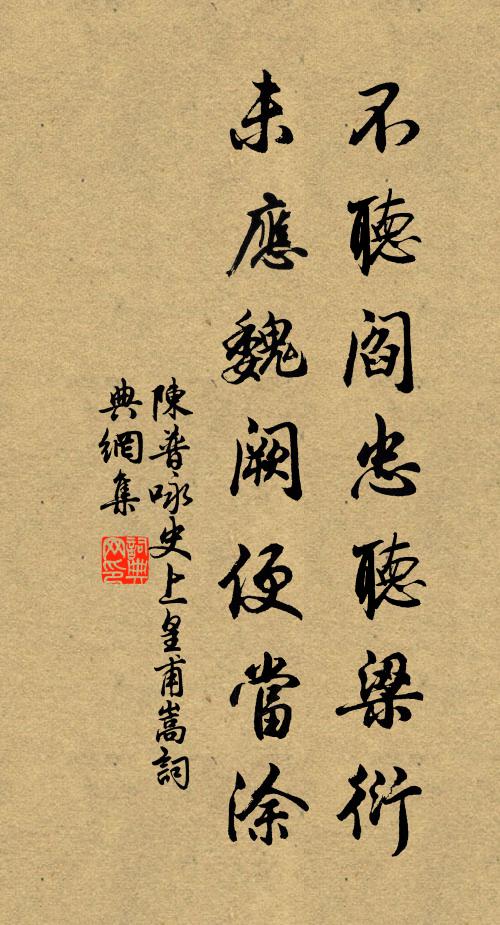 不聽閻忠聽梁衍
未應魏闕便當涂
陳普咏史上皇甫嵩詞
典網集
詞典網印